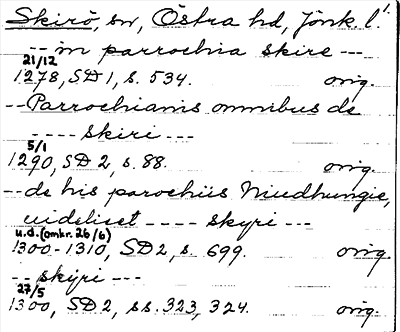 Skirö, sn, Östra hd, Jönk. l.
-- in parrochia skire ---
21/12
1278, SD 1, s. 534. orig.
-- Parrochianis omnibus de
---- skiri ---
5/1
1290, SD 2, s. 88. orig.
-- de his parochiis Niudhungie,
uideliset ---- skyri ---
u.d. (omkr. 26/6)
1300-1310, SD 2, s. 699. orig.
-- skÿri ---
27/5
1300, SD 2, ss. 323, 324. orig.